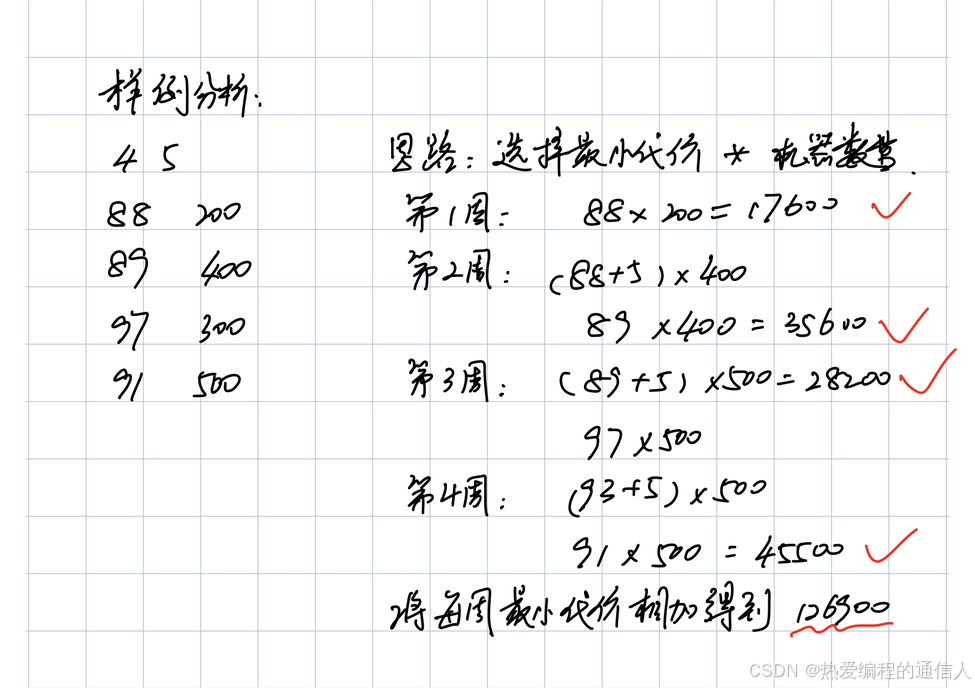 样例分析:
4 5
88 200
89 400
97 300
91 500
思路: 选择最小代价 * 机器数量.
第1周: 88 × 200 = 17600 ✓
第2周: (88+5) × 400
89 × 400 = 35600 ✓
第3周: (89+5) × 500 = 28200 ✓
97 × 500
第4周: (93+5) × 500
91 × 500 = 45500 ✓
将每周最小代价相加得到 126900
CSDN @热爱编程的通信人